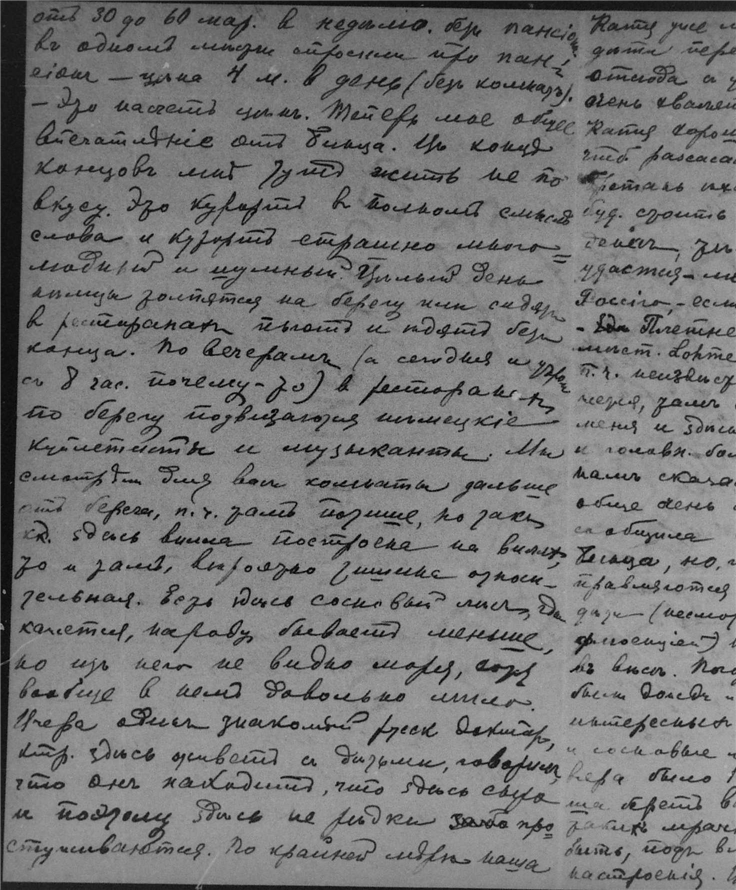 отъ 30 до 60 мар. в недѣлю. безъ пансіона
въ одномъ мѣстѣ спросили про пан-
сіонъ — цѣна 4 м. в день (безъ комнатъ).
— Это насчетъ цѣнъ. Теперь мое общее
впечатлѣніе отъ Бинца. Въ концѣ
концовъ мнѣ тутъ жить не по
вкусу. Это курортъ в полномъ смыслѣ
слова и курортъ страшно много=
людный и шумный. Цѣлый день
нѣмцы толпятся на берегу или сидятъ
в ресторанахъ пьютъ и ѣдятъ безъ
конца. По вечерамъ (а сегодня и утромъ
съ 8 час. почему-то) в ресторанахъ
по берегу подвизаются нѣмецкіе
куплетисты и музыканты. Мы
смотрѣли для васъ комнаты дальше
отъ берега, п.ч. тамъ потише, но такъ
кк. здѣсь вилла построена на виллѣ,
то и тамъ, вѣроятно тишина относи-
тельная. Есть здѣсь сосновый лѣсъ, гдѣ
кажется, народу бываетъ меньше,
но изъ него не видно моря, хотя
вообще в немъ довольно мило.
Вчера одинъ знакомый русск доктор,
ктр. здѣсь живетъ с дѣтьми, говорилъ,
что онъ находитъ, что здѣсь сыро
и поэтому здѣсь не рѣдки про
стуживаются. По крайней мѣрѣ наша
Катя уже
дыти пере
отсюда а у
очень хвалит
Катя хорош
чтб расска
буд. стоить
удастся
Россію, — если
— Плетне
п.ч. неизвѣст
меня и здѣсь
и головн. бол
намъ сказа
обще день
сообщила
Бинца, но,
правляются
дѣти (несмо
были дождь
интересных
и сосновые
вера было
ша беретъ в
таких мрач
быть, подъ вл
настроенія.